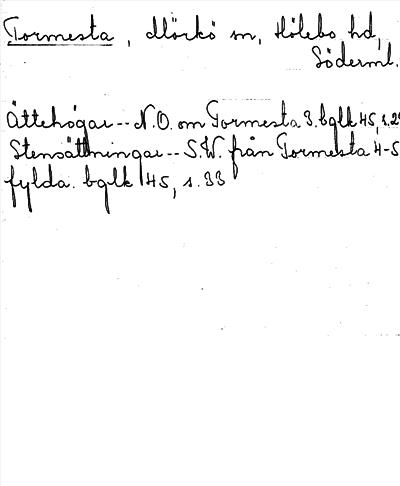 Tormesta, Mörkö sn, Hölebo hd,
Söderml.
Ättehögar -- N.O. om Tormesta 3. bglk 45, s.29
Stensättningar -- S.W. från Tormesta 4-5
fylda. bglk 45, s. 33